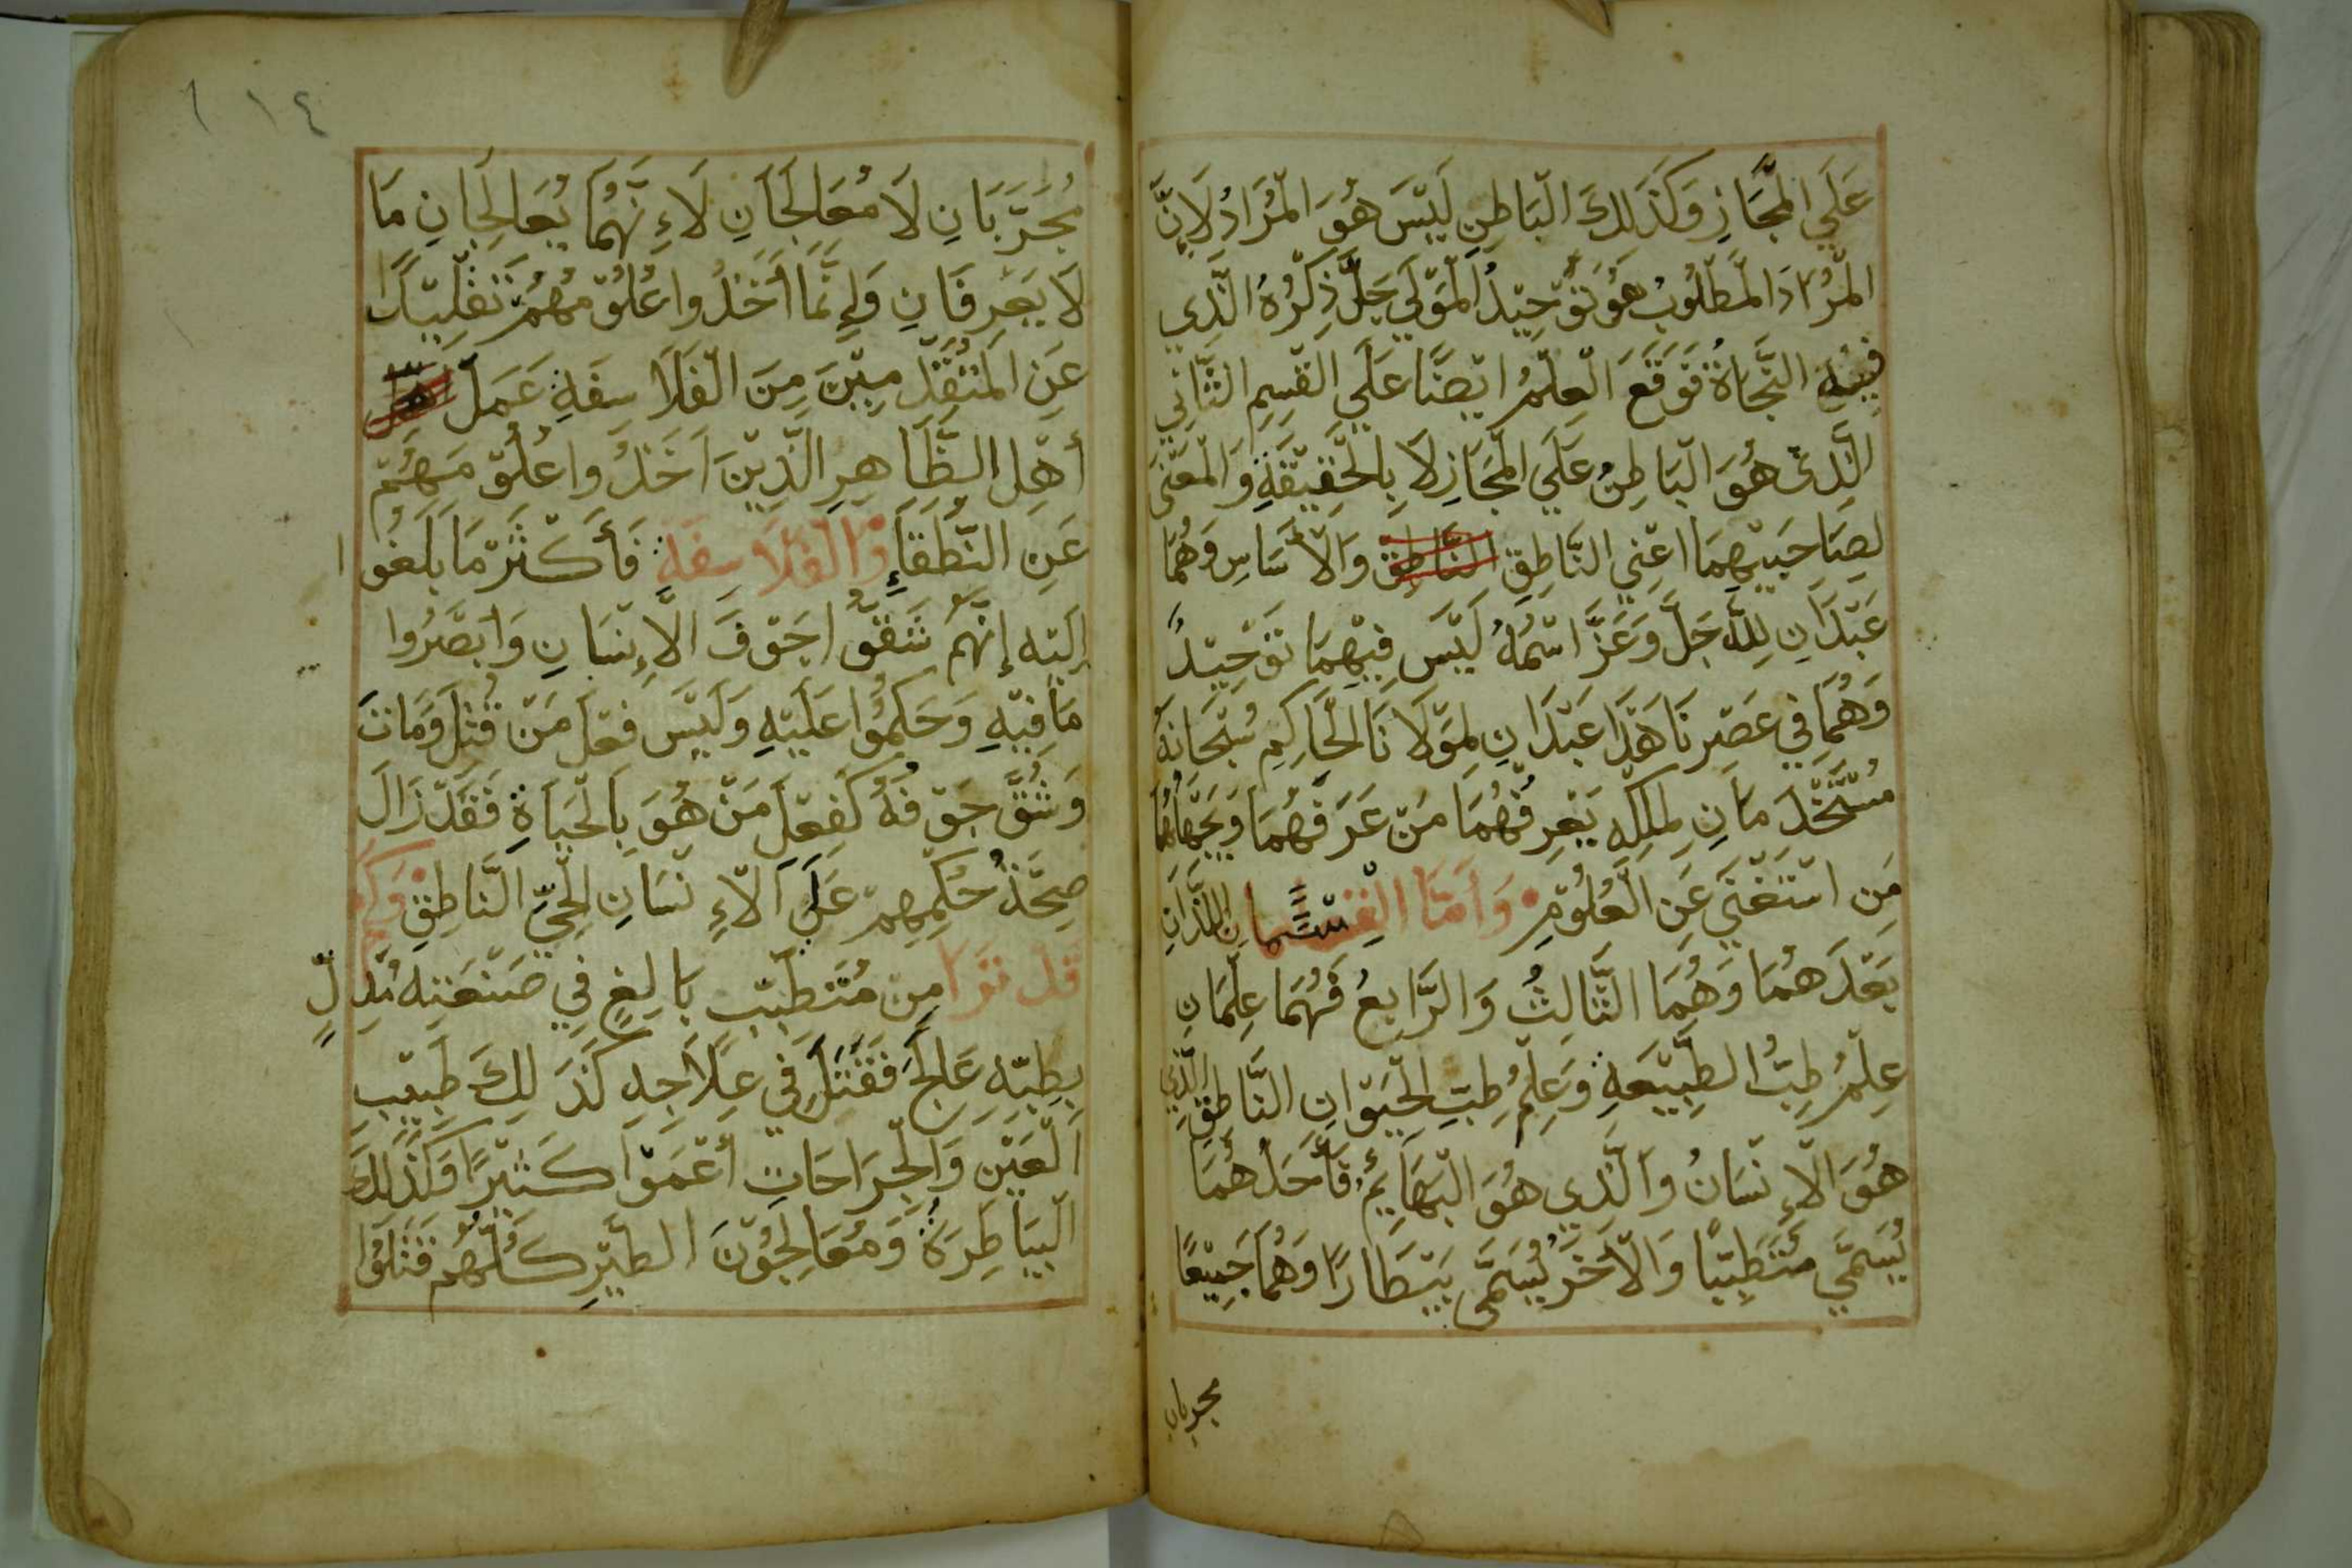 عَلَي الْمَجَازِ وَكَذَلِكَ الْبَاطِنِ لَيْسَ هُوَ الْمُرَادُ لَإِنَّ
الْمُرَادَ الْمَطْلُوبُ هُوَ تَوْحِيْدُ الْمَوْلَي جَلَّ ذِكْرُهُ الَّذِي
فِيْهِ النَّجَاةُ فَوَقَعَ الْعِلْمُ ايْضًا عَلَي الْقِسِمِ الثَّانِي
الَّذِيْ هُوَ الْبَاطِنُ عَلَي الْمَجَازِ لَا بِالْحَقِيْقَةِ وَالْمَعْنَى
لِصَاحِبَيْهِمَا اعْنِي النَّاطِقِ النَّاطِقْ وَالْأَسَاسِ وَهُمَا
عَبْدَانِ لِلَّه جَلَّ وَعَزَّ اسْمُهُ لَيْسَ فِيْهِمَا تَوْحِيْدٌ
وَهُمَا فِي عَصْرِنَا هَذَا عَبْدَانِ لِمَوْلَانَا الْحَاكِمِ سُبْحَانَهُ
مُسْتَخْدَمَانِ لِمُلْكِهِ يَعْرِفُهُمَا مَنْ عَرَفَهُمَا وَيَجْهَلُهُمَا
مَنِ اسْتَغْنَي عَنِ الْعُلُوْمِ وَأَمَّا الْقِسْمَانِ اللَّذَانِ
بَعْدَهُمَا وَهُمَا الثَّالِثُ وَالرَّابِعُ فَهُمَا عِلْمَانِ
عِلْمُ طِبُّ الطَّبِيْعَةِ وَعِلْمُ طِبِّ الْحَيَوَانِ النَّاطِقِ الَّذِي
هُوَ الْإِنْسَانُ وَالَّذِي هُوَ الْبَهَايِمُ فَأَحَدُهُمَا
يُسَمَّي مُتَطَبِّبًا وَالْآخَرُ يُسَمَّى بَيْطَارًا وَهُمَا جَمِيْعًا
مجربان
١١٤
مُجَرِّبَانِ لَا مُعَالِجَانِ لَاءِنَّهُمَا يُعَالِجَانِ مَا
لَا يَعْرِفَانِ وَإِنَّمَا أَخَذُوا عُلُوْمَهُمْ تَقْلِيْدًا
عَنِ الْمُتَقَدِّمِيْنَ مِنَ الْفَلَاسِفَةِ عَمَلَ
أَهْلِ الظَّاهِرِ الَّذِيْنَ اَخَذُوا عُلُوْمَهُمْ
عَنِ النُّطَقَاءِ وَالْفَلَاسِفَةِ فَأَكْثَرْ مَا بَلَغُوا
إِلَيْهِ إِنَّهُمْ شَقُّوا جَوْفَ الْإِنْسَانِ وَابْصَرُوا
مَا فِيْهِ وَحَكَمُوْا عَلَيْهِ وَلَيْسَ فِعْلَ مَنْ قُتِلَ وَمَاتَ
وَشُقَّ جَوْفُهُ كَفِعْلِ مَنْ هُوَ بِالْحَيَاةِ فَقَدْ زَالَ
صِحَّةُ حُكْمِهِمْ عَلَي الْاءِنْسَانِ الْحَيِّ النَّاطِقِ وَكَمْ
قَدْ نَرَا مِنْ مُتَطَبِّبٍ بَالِغٍ فِي صَنْعَتِهِ مُدِلٍّ
بِطِبِّهِ عَالَجَ فَقَتَلَ فِي عِلَاجِهِ كَذَلِكَ طَبِيْبِ
الْعَيْنِ وَالْجِرَاحَاتِ أَعْمَوْا كَثِيْرًا وَكَذَلِكَ
الْبَيَاطِرَةُ وَمُعَالِجُوْنَ الطَّيْرِ كُلُّهُمْ قَتَلُوْا